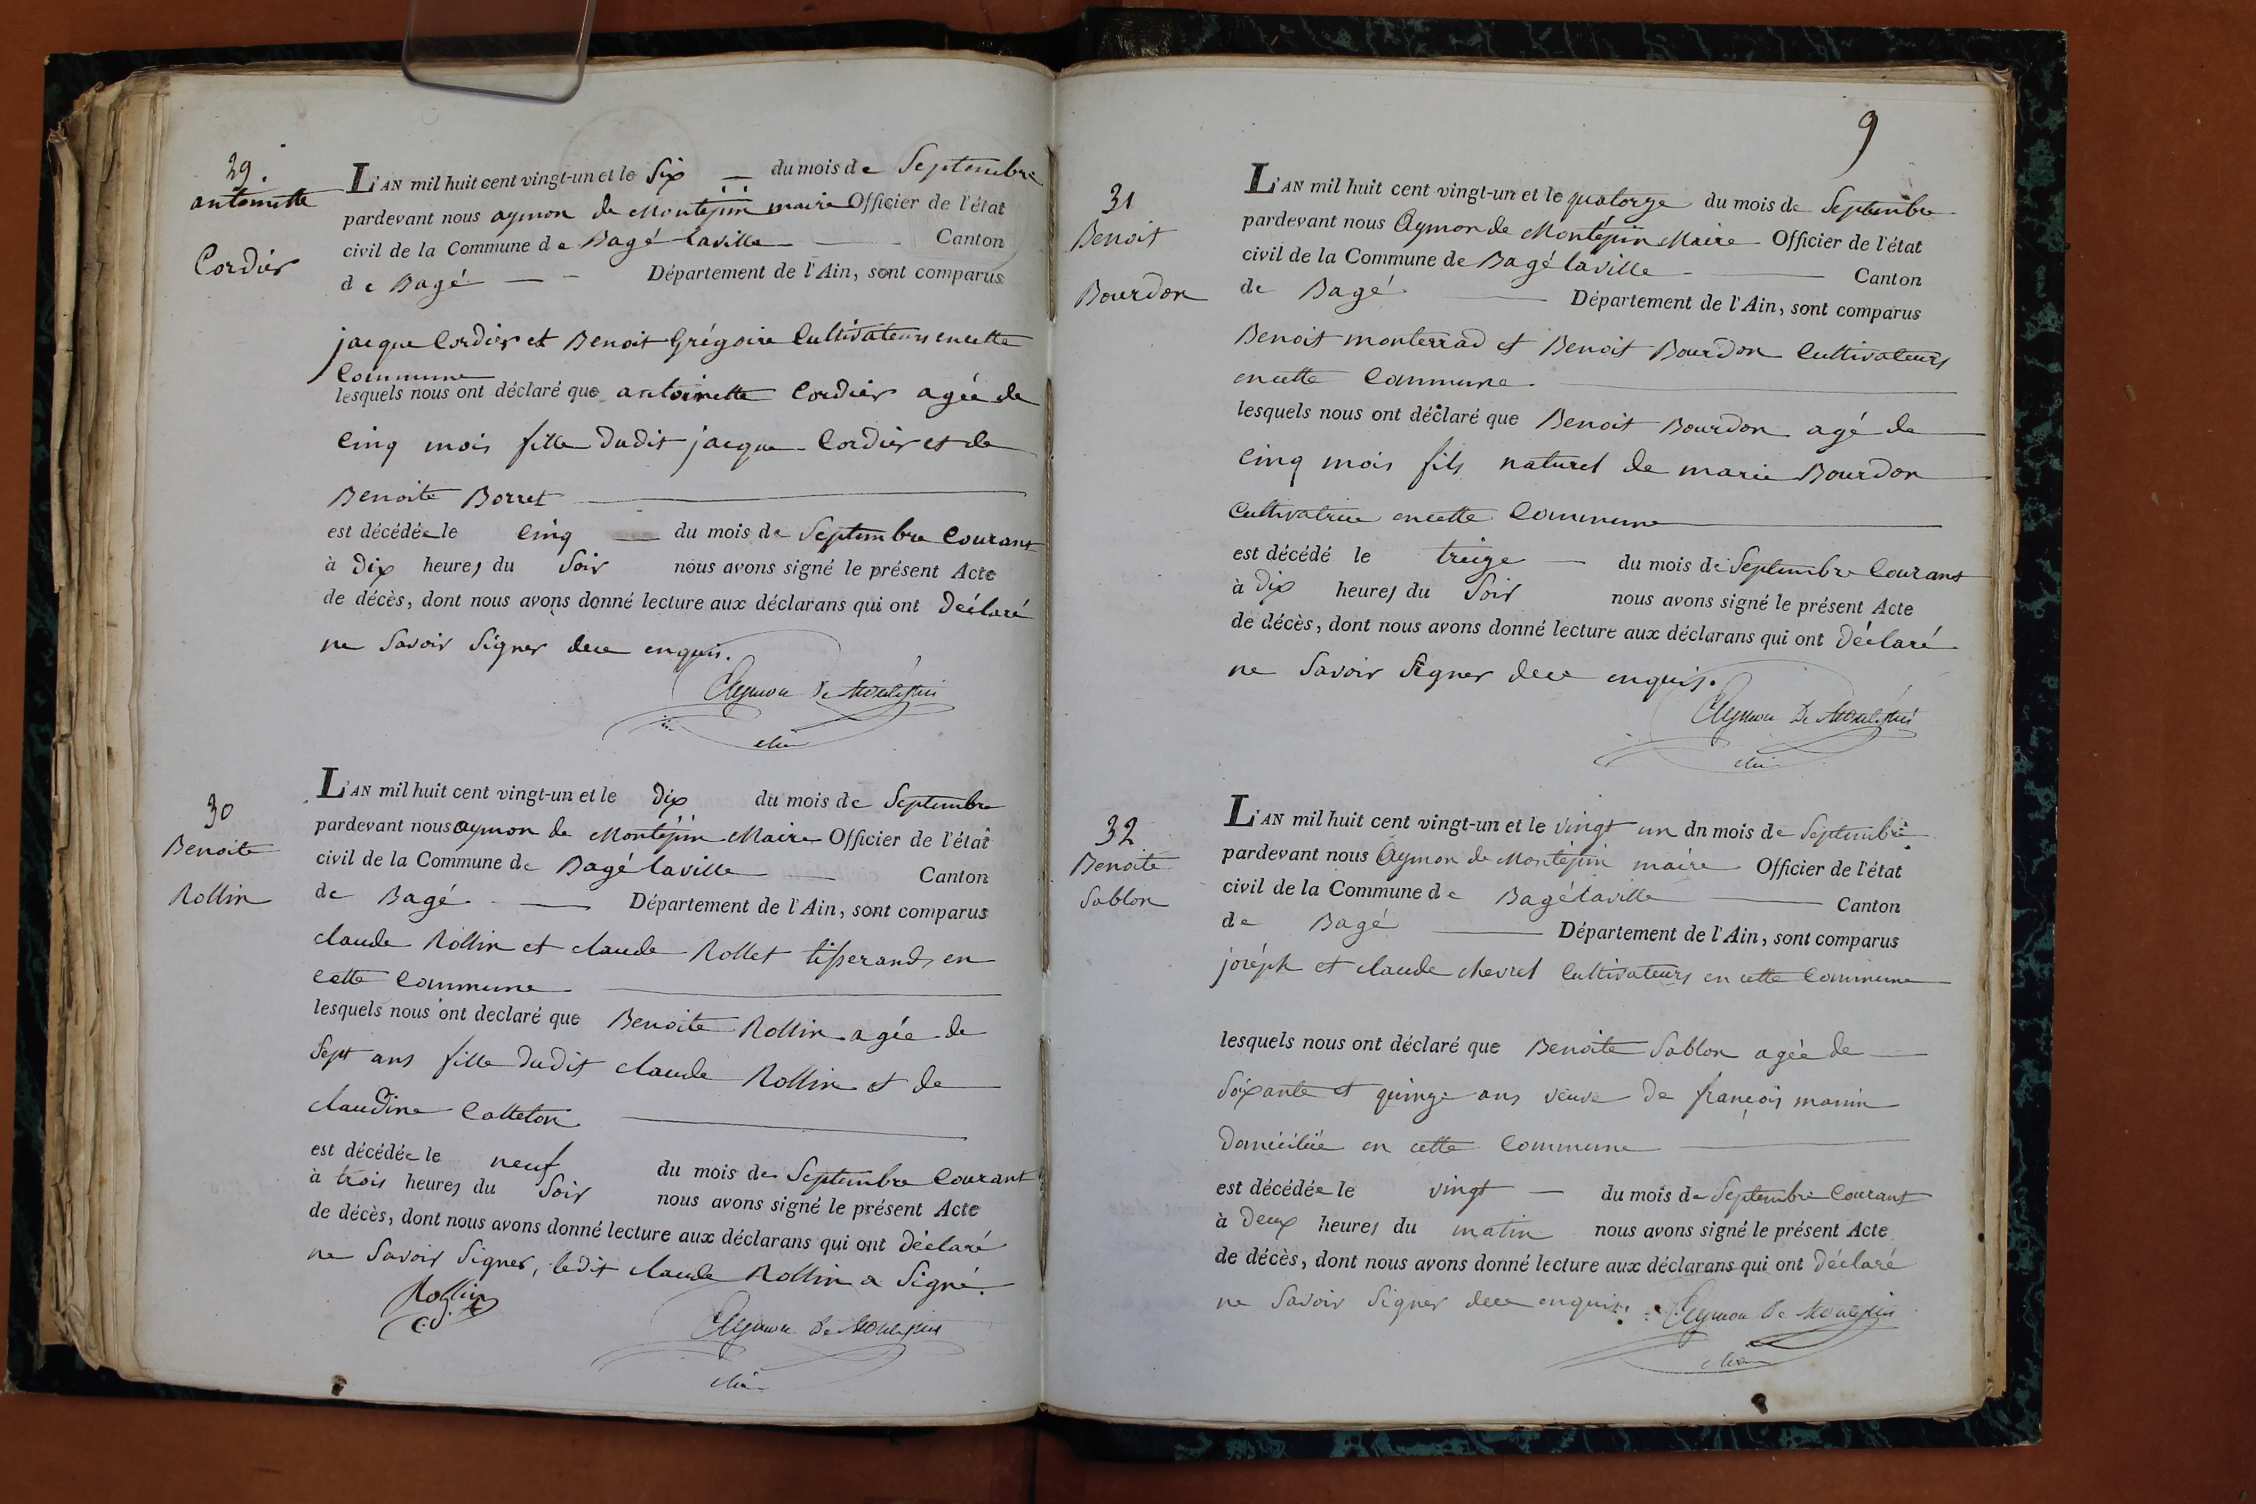 29.
antoinette
Cordier
L'AN mil huit cent vingt-un et le Six du mois de Septembre
pardevant nous aymon de Montépin maire Officier de l'état
civil de la Commune de Bagé laville Canton
de Bagé Département de l'Ain, sont comparus
jacque Cordier et Benoit Grégoire Cultivateurs encette
Commune
lesquels nous ont déclaré que antoinette Cordier agée de
Cinq mois fille dudit jacque Cordier et de
Benoite Borret
est décédée le Cinq du mois de Septembre Courant
à dix heures du Soir nous avons signé le présent Acte
de décès, dont nous avons donné lecture aux déclarans qui ont déclaré
ne Savoir Signer dece enquis.
Aymon De Montépin
30
Benoite
Rollin
L'AN mil huit cent vingt-un et le dix du mois de Septembre
pardevant nous aymon de Montépin Maire Officier de l'état
civil de la Commune de Bagé laville Canton
de Bagé Département de l'Ain, sont comparus
claude Rollin et claude Rollet tisserands en
cette Commune
lesquels nous ont declaré que Benoite Rollin agée de
Sept ans fille dudit claude Rollin et de
claudine Catteton
est décédée le neuf du mois de Septembre Courant
à trois heures du Soir nous avons signé le présent Acte
de décès, dont nous avons donné lecture aux déclarans qui ont déclaré
ne Savoir Signer, ledit claude Rollin a Signé.
Rollin
Aymon De Montépin
9
31
Benoit
Bourdon
L'AN mil huit cent vingt-un et le quatorze du mois de Septembre
pardevant nous Aymon de Montépin Maire Officier de l'état
civil de la Commune de Bagé laville Canton
de Bagé Département de l'Ain, sont comparus
Benoit monterrad et Benoit Bourdon Cultivateurs
encette Commune
lesquels nous ont déclaré que Benoit Bourdon agé de
Cinq mois fils naturel de marie Bourdon
Cultivatrice encette Commune
est décédé le treize du mois de Septembre Courant
à Dix heures du Soir nous avons signé le présent Acte
de décès, dont nous avons donné lecture aux déclarans qui ont Déclaré
ne Savoir Signer dece enquis.
Aymon De Montépin
32
Benoite
Sablon
L'AN mil huit cent vingt-un et le vingt un dn mois de Septembre
pardevant nous Aymon de Montépin maire Officier de l'état
civil de la Commune de Bagé laville Canton
de Bagé Département de l'Ain, sont comparus
joséph et claude chevrel Cultivateurs en cette Commune
lesquels nous ont déclaré que Benoite Sablon agée de
Soixante et quinze ans veuve de françois manin
domiciliée en cette Commune
est décédée le vingt du mois de Septembre Courant
à deux heures du matin nous avons signé le présent Acte
de décès, dont nous avons donné lecture aux déclarans qui ont déclaré
ne Savoir Signer dece enquis. Aymon De Montépin